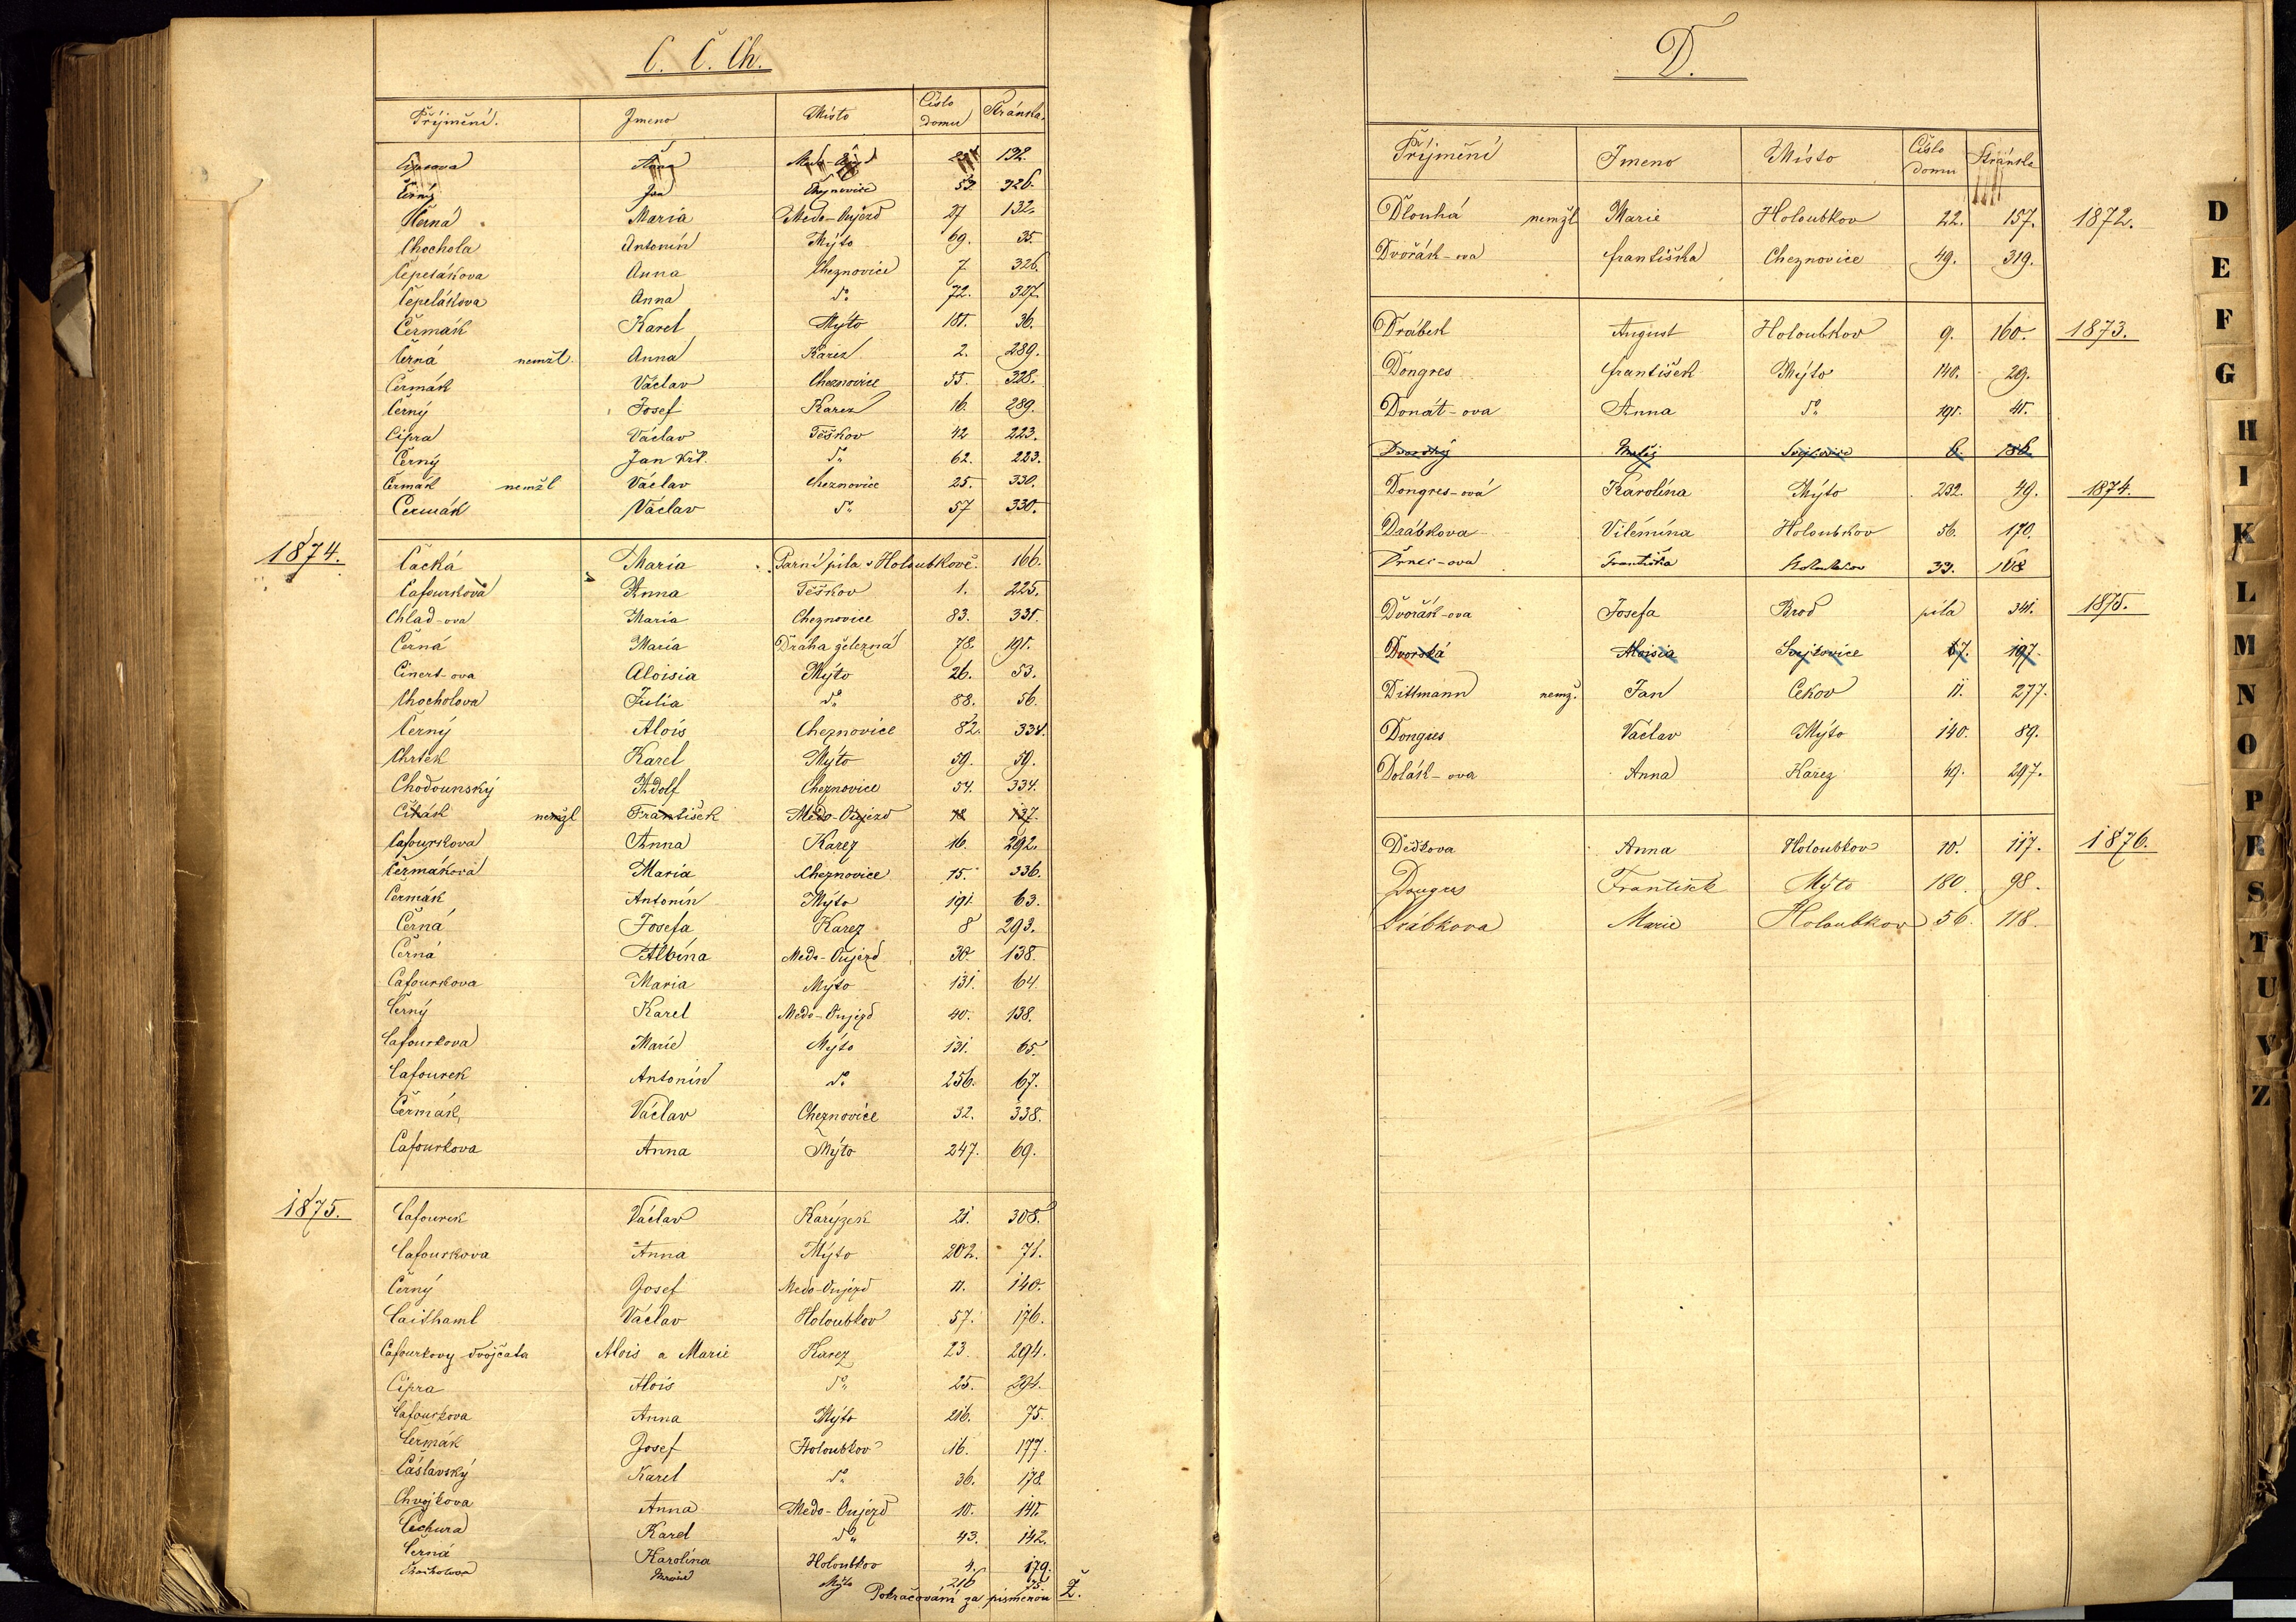 C. Č. Ch.
Příjmění. Jmeno Místo Číslo domu Stránka.
Ciprova Anna Medo-Oujezd 132.
Černý Jan Cheznovice 53. 326.
Černá Maria Medo-Oujezd 27 132.
Chochola Antonín Mýto 69. 35.
Čepelákova Anna Cheznovice 7. 326.
Čepelákova Anna dº 72. 327.
Čermák Karel Mýto 181. 36.
Černá nemžl. Anna Karez 2. 289.
Čermák Václav Cheznovice 55. 328.
Černý Josef Karez 16. 289.
Cipra Václav Těškov 42 223.
Černý Jan Křt. dº 62. 223.
Čermák nemžl Václav Cheznovice 25. 330.
Čermák Václav dº 57 330.
1874.
Čacká Maria Parní pila v Holoubkově. 166.
Cafourková Anna Těškov 1. 225.
Chlad-ova Maria Cheznovice 83. 331.
Černá Maria Dráha železná 78. 191.
Cinert-ova Aloisia Mýto 26. 53.
Chocholova Julia dº 88. 56.
Černý Alois Cheznovice 82. 334.
Chrtek Karel Mýto 59. 59.
Chodounský Adolf Cheznovice 54. 334.
nemžl František Medo-Oujezd 18. 137.
Cafourkova Anna Karez 16. 292.
Čermákova Maria Cheznovice 15. 336.
Čermák Antonín Mýto 191. 63.
Černá Josefa Karez 8 293.
Černá Albína Medo-Oujezd 30. 138.
Cafourkova Maria Mýto 131. 64.
Černý Karel Medo-Oujezd 40. 138.
Cafourkova Marie Mýto 131. 65.
Cafourek Antonín dº 256. 67.
Čermák Václav Cheznovice 32. 338.
Cafourkova Anna Mýto 247. 69.
1875.
Cafourek Václav Karýzek 21. 308.
Cafourkova Anna Mýto 202. 71.
Černý Josef Medo-Oujezd 11. 140.
Caithaml Václav Holoubkov 57. 176.
Cafourkovy dvojčata Alois a Marie Karez 23. 294.
Cipra Alois dº 25. 294.
Cafourkova Anna Mýto 216. 75.
Čermák Josef Holoubkov 16. 177.
Čáslavský Karel dº 36. 178.
Chvojkova Anna Medo-Oujezd 10. 141.
Čechura Karel dº 43. 142.
Černá Karolína Holoubkov 4. 179.
Marie Mýto 216 75.
Pokračování za písmenou Ž.
D.
Příjmění Jmeno Místo Číslo domu Stránka
Dlouhá nemžl Marie Holoubkov 22. 157. 1872.
Dvořák-ova Františka Cheznovice 49. 319.
Drábek August Holoubkov 9. 160. 1873.
Dongres František Mýto 140. 29.
Donát-ova Anna dº 191. 41.
Dvorský Matěj Svojkovice 6. 186.
Dongres-ová Karolína Mýto 232. 49. 1874.
Drábkova Vilémína Holoubkov 56. 170.
Františka Holoubkov 33. 168
Dvořák-ova Josefa Brod pila 341. 1875.
Dvorská Aloisia Svojkovice 67. 197.
Dittmann nemž. Jan Cekov 11. 277.
Dongres Václav Mýto 140. 89.
Dolák-ova Anna Karez 49. 297.
Dědkova Anna Holoubkov 10. 117. 1876.
Dongres František Mýto 180. 98.
Drábkova Marie Holoubkov 56. 118.
D
E
F
G
H
I
K
L
M
N
O
P
R
S
T
U
V
Z